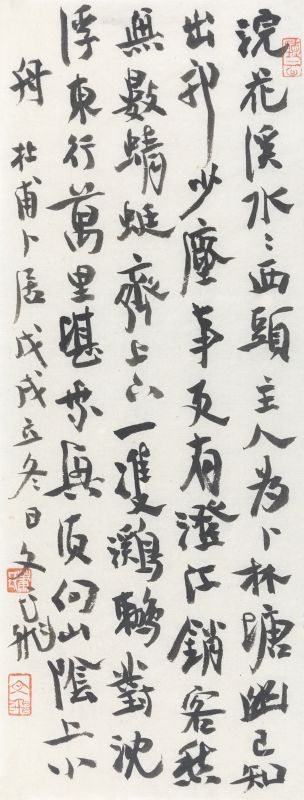 浣花溪水〻西頭主人為卜林塘幽已知
出郭少塵事更有澄江銷客愁
無數蜻蜓齊上下一雙鸂鶒對沈
浮東行萬里堪乘興須向山陰上小
舟 杜甫卜居戊戌立冬日文